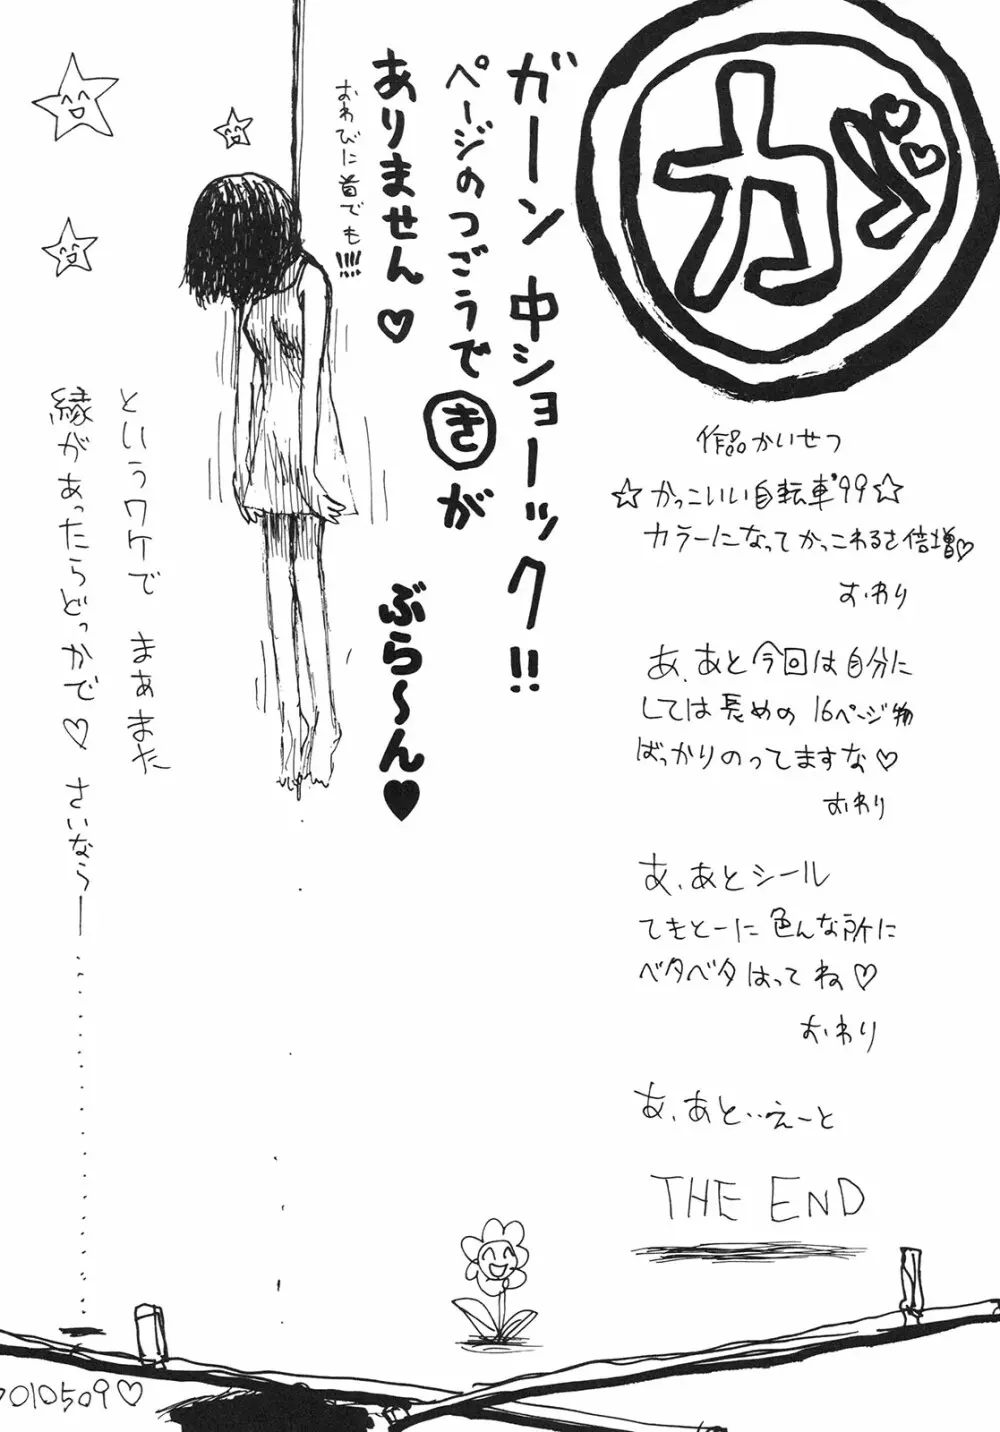 ガ
ガーン 中ショーック!!
ページのつごうできが
ありません♡
おわびに首でも!!!!
ぶら〜ん♥
作品かいせつ
☆かっこいい自転車'99☆
カラーになってかっこわるさ倍増♡
おわり
あ、あと今回は自分に
しては長めの16ページ物
ばっかりのってますな♡
おわり
あ、あとシール
てきとーに色んな所に
ベタベタはってね♡
おわり
あ、あと‥えーと
THE END
というワケで まぁまた
縁があったらどっかで♡ さいならー……
♡010509♡